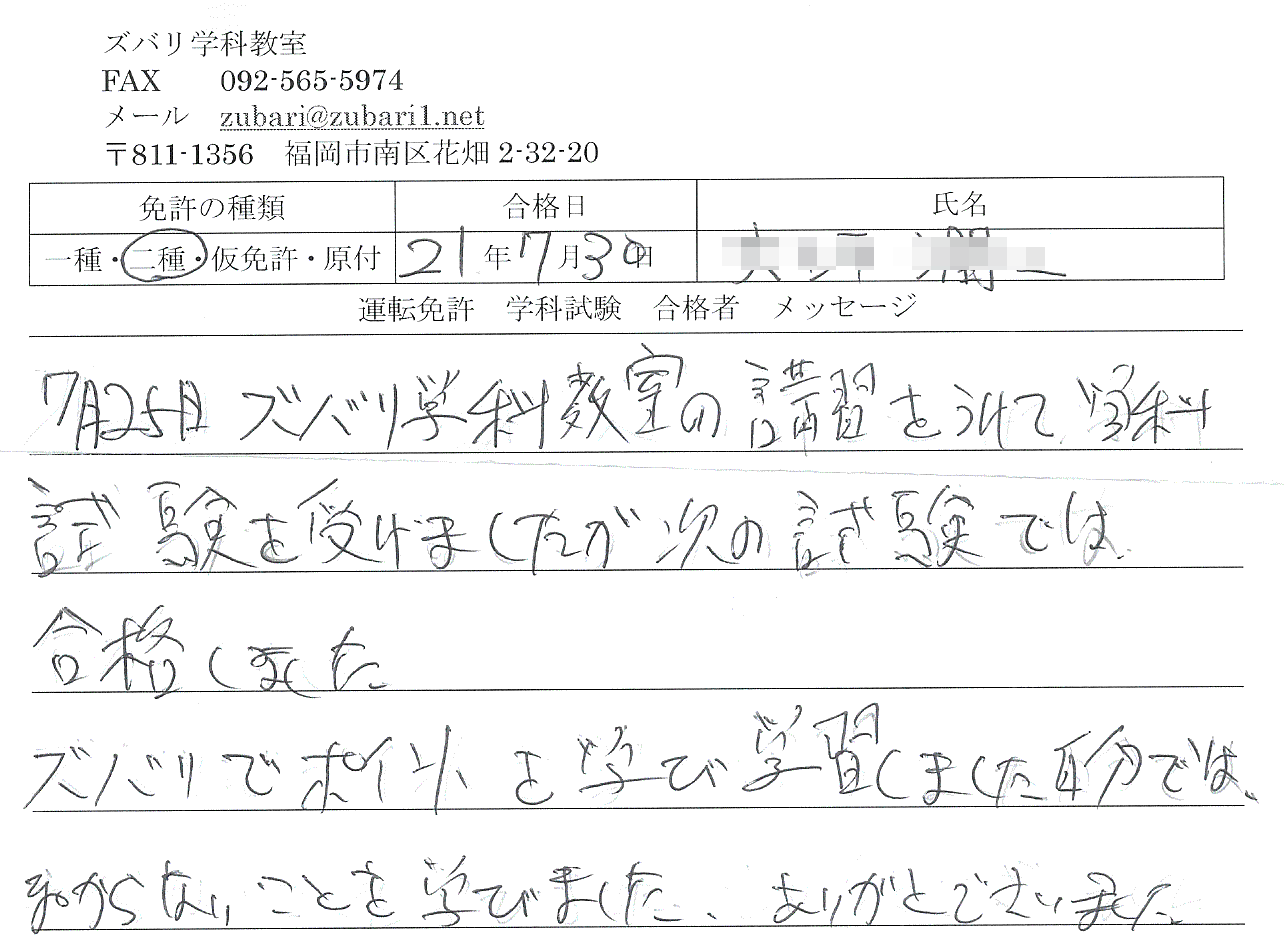 ズバリ学科教室
FAX 092-565-5974
メール zubari@zubari1.net
〒811-1356 福岡市南区花畑 2-32-20
免許の種類 合格日 氏名
一種・二種・仮免許・原付 21年7月30日
運転免許 学科試験 合格者 メッセージ
7月25日 ズバリ学科教室の講習をうけて 学科
試験を受けましたが次の試験では
合格しました
ズバリでポイントを学び学習しました自分では、
わからないことを学びました、ありがとございました